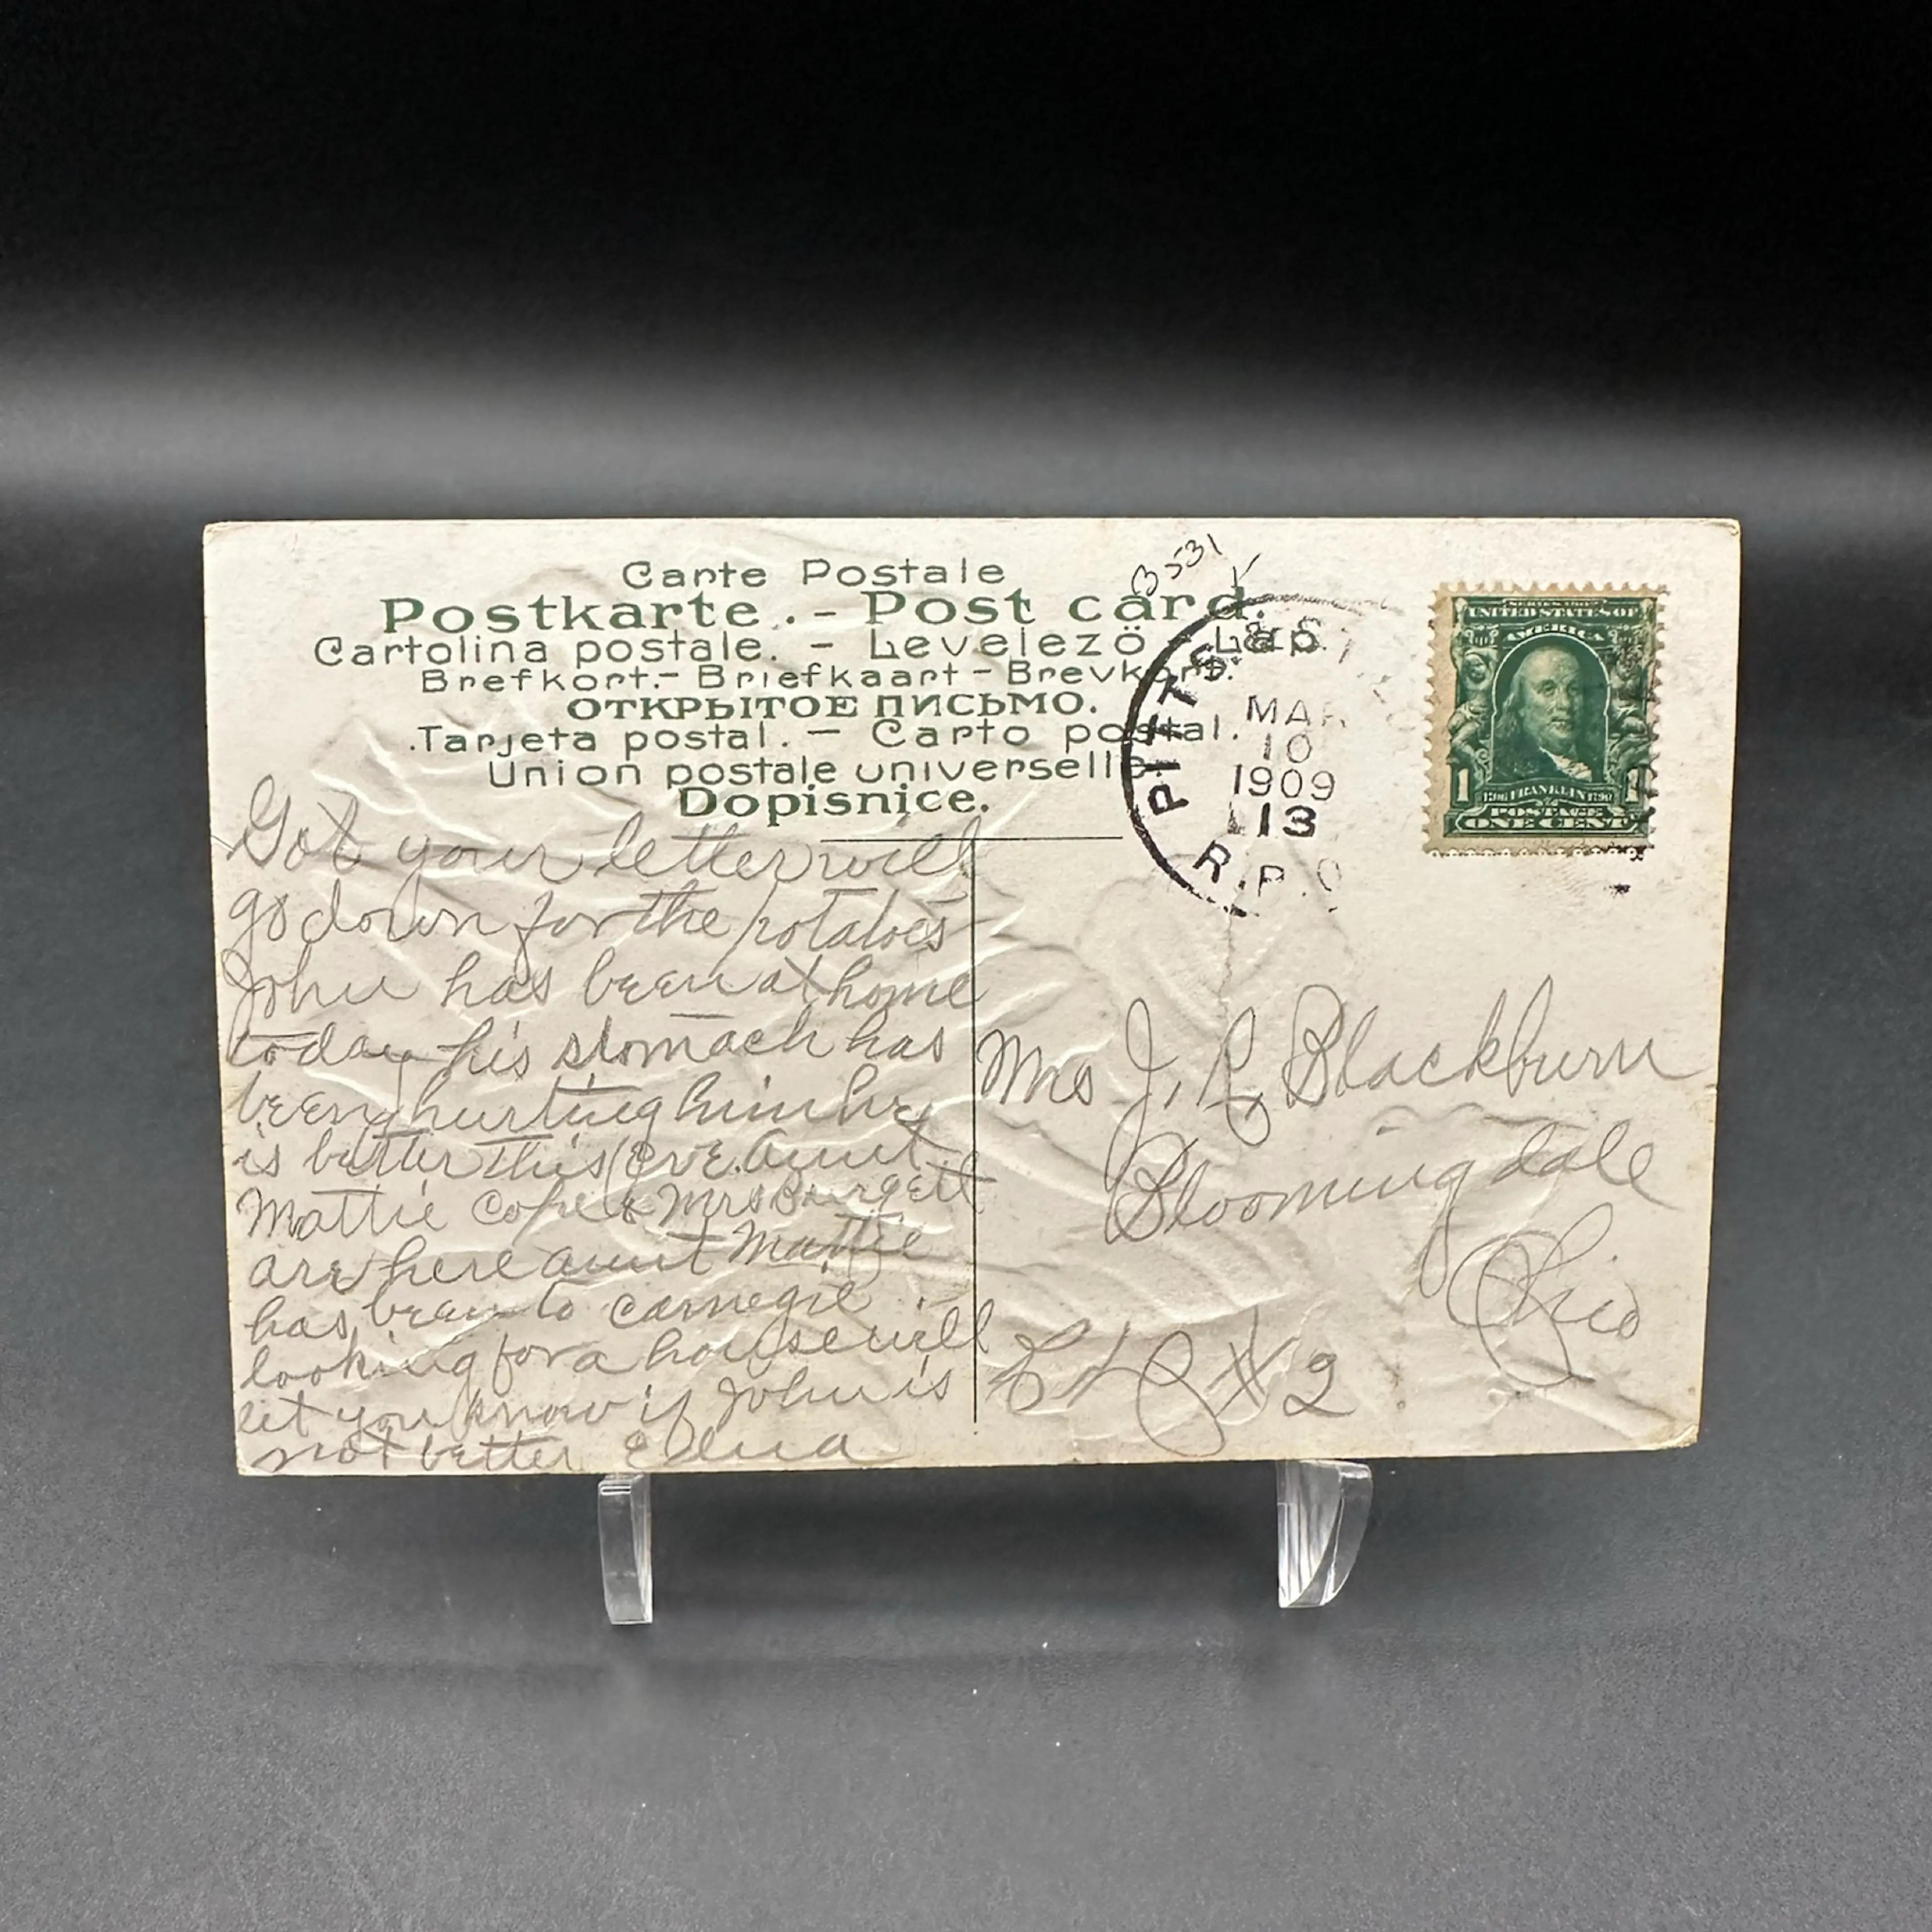 Carte Postale
Postkarte. - Post card.
Cartolina postale. - Levelezö - Lap.
Brefkort. - Briefkaart - Brevkort.
ОТКРЫТОЕ ПИСЬМО.
Tarjeta postal. - Carto postal.
Union postale universelle
Dopisnice.
3531
PITTS
MAR
10
1909
13
R.P.O
SERIES 1902
UNITED STATES OF
AMERICA
1706 FRANKLIN 1790
1 1
POSTAGE
ONE CENT
Got your letter will
go down for the potatoes
John has been at home
today his stomach has
been hurting him he
is better this eve. Aunt
Mattie Cope & Mrs Burgett
are here aunt Mattie
has been to Carnegie
looking for a house will
let you know if John is
not better Edna
Mrs J. R. Blackburn
Bloomingdale
Ohio
# 2